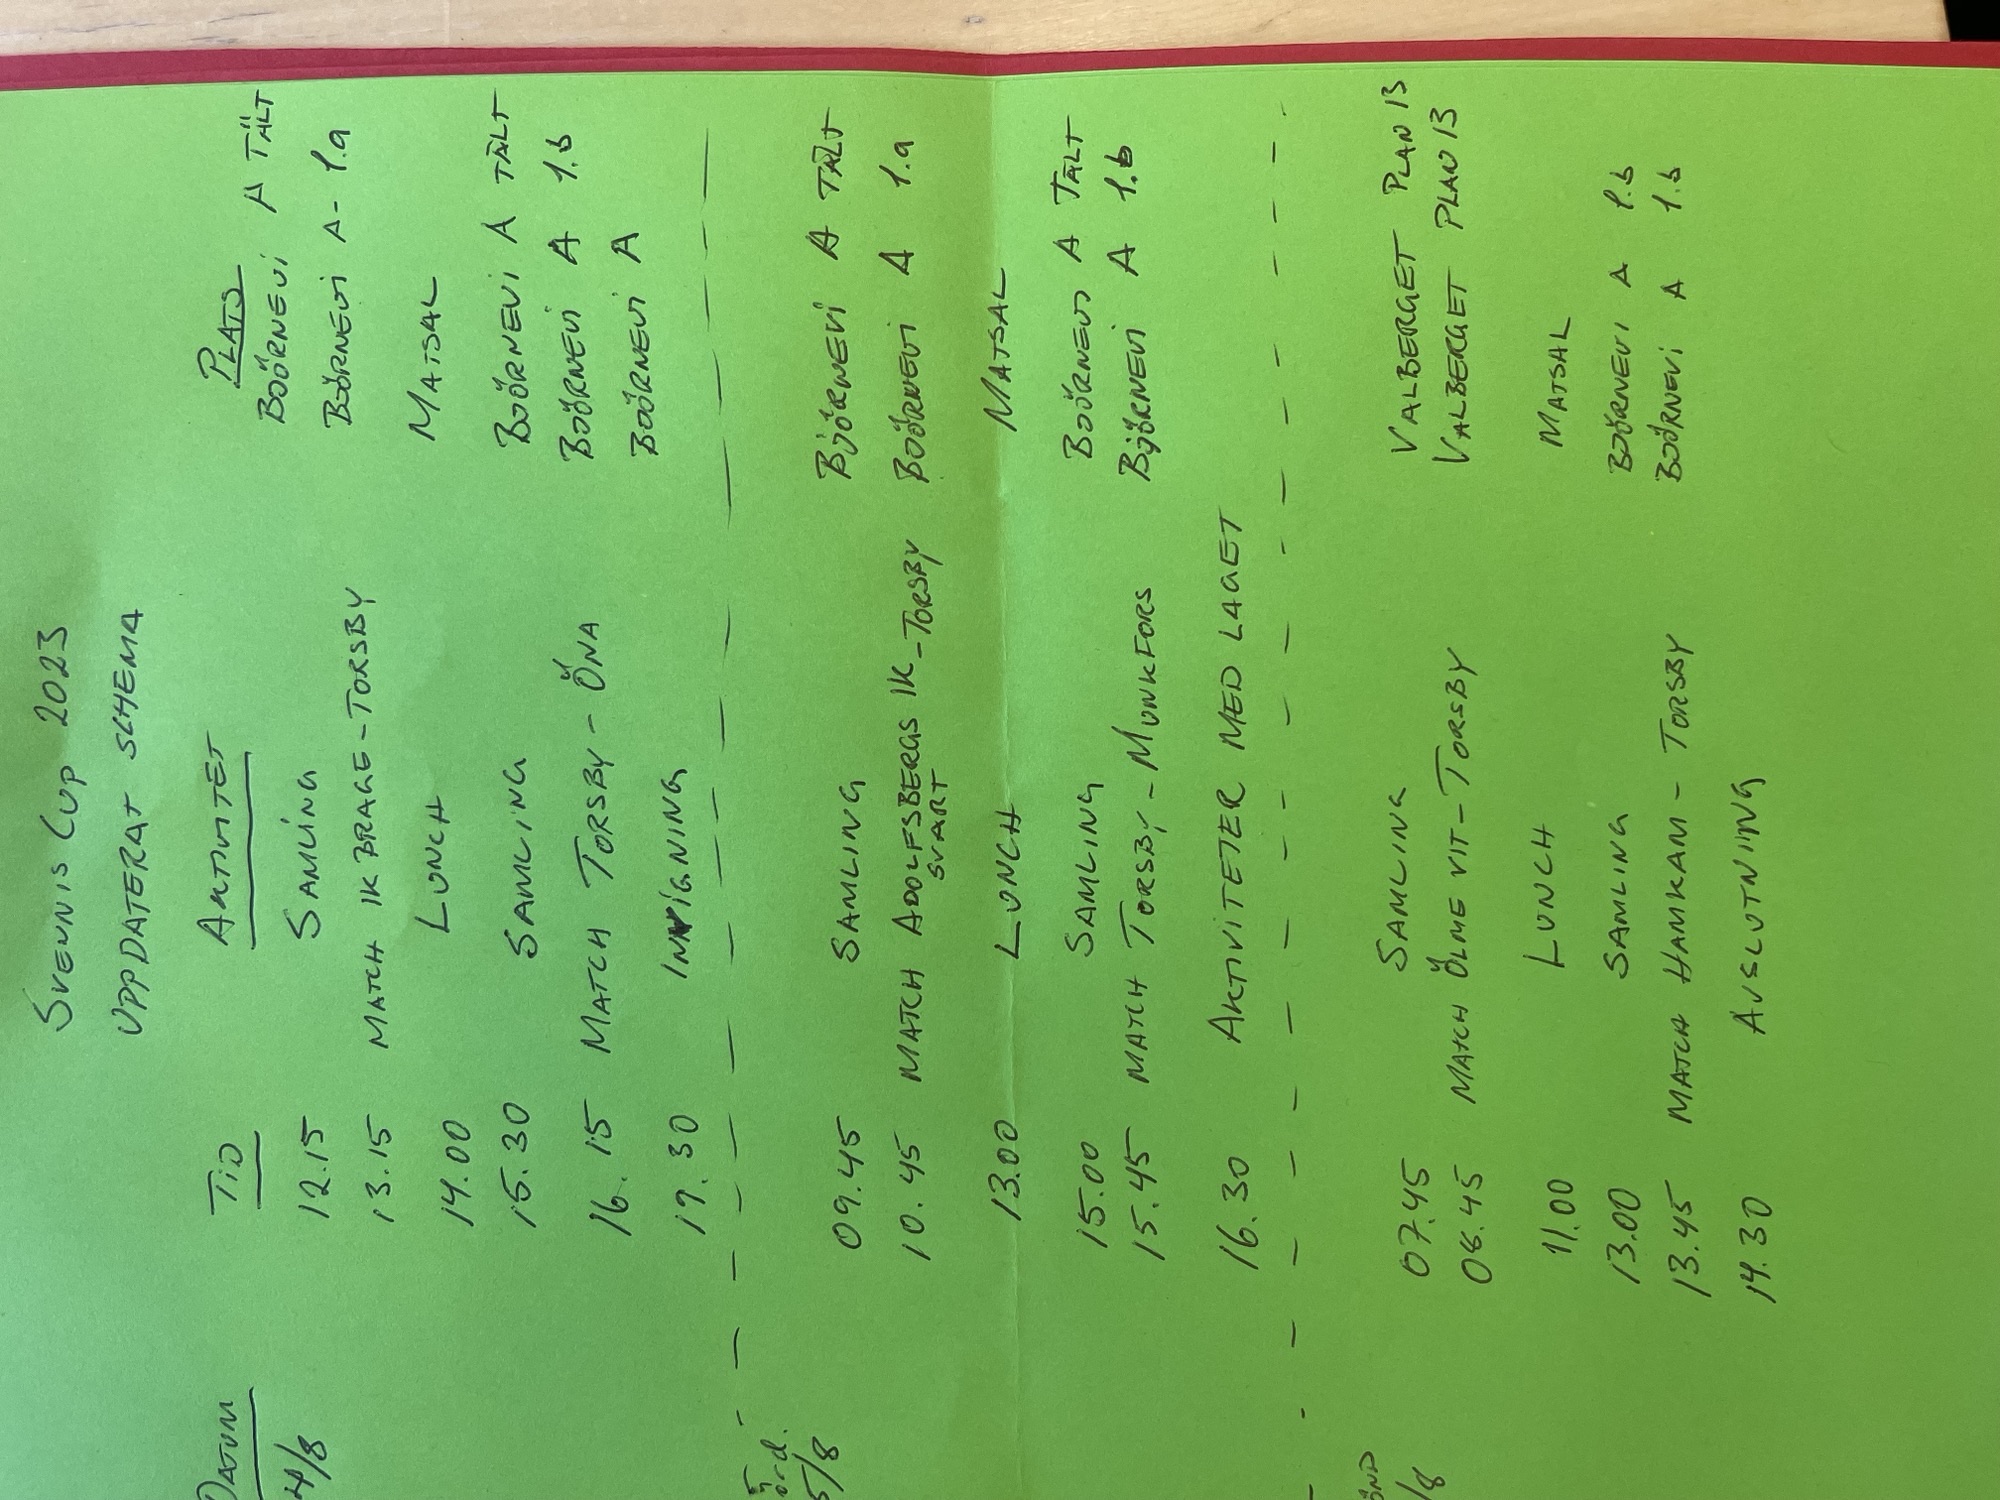 SVENNIS CUP 2023
UPPDATERAT SCHEMA
DATUM TID AKTIVITET PLATS
4/8 12.15 SAMLING BJÖRNEVI A TÄLT
13.15 MATCH IK BRAGE-TORSBY BJÖRNEVI A- 1.a
14.00 LUNCH MATSAL
15.30 SAMLING BJÖRNEVI A TÄLT
16.15 MATCH TORSBY - ÖNA BJÖRNEVI A 1.b
19.30 INVIGNING BJÖRNEVI A
5/8 09.45 SAMLING BJÖRNEVI A TÄLT
10.45 MATCH ADOLFSBERGS IK - TORSBY BJÖRNEVI A 1.a
SVART
13.00 LUNCH MATSAL
15.00 SAMLING BJÖRNEVI A TÄLT
15.45 MATCH TORSBY - MUNKFORS BJÖRNEVI A 1.b
16.30 AKTIVITETER MED LAGET
/8 07.45 SAMLING VALBERGET PLAN 13
08.45 MATCH ÖLME VIT - TORSBY VALBERGET PLAN 13
11.00 LUNCH MATSAL
13.00 SAMLING BJÖRNEVI A 1.b
13.45 MATCH HAMKAM - TORSBY BJÖRNEVI A 1.b
14.30 AVSLUTNIING